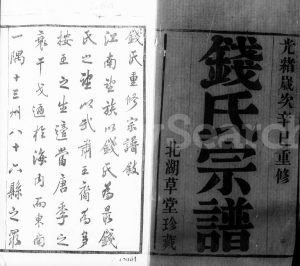 光緒歲次辛巳重修
錢氏宗譜
北湖草堂珍藏
錢氏重修宗譜敘
江南望族以錢氏為最錢
氏之望以武肅王裔為多
按王之生壇當唐季之
衰干戈遍於海內而東南
一隅十三州八十六縣之眾